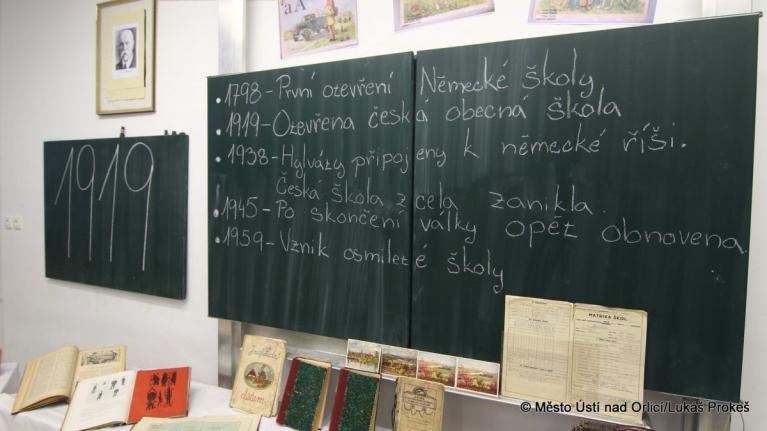 aA
• 1798 - První otevření Německé školy
• 1919 - Otevřena česká obecná škola
• 1938 - Hylváty připojeny k německé říši.
Česká škola zcela zanikla.
• 1945 - Po skončení války opět obnovena
• 1959 - Vznik osmileté školy
1919
MATRIKA ŠKOL
© Město Ústí nad Orlicí/Lukáš Prokeš